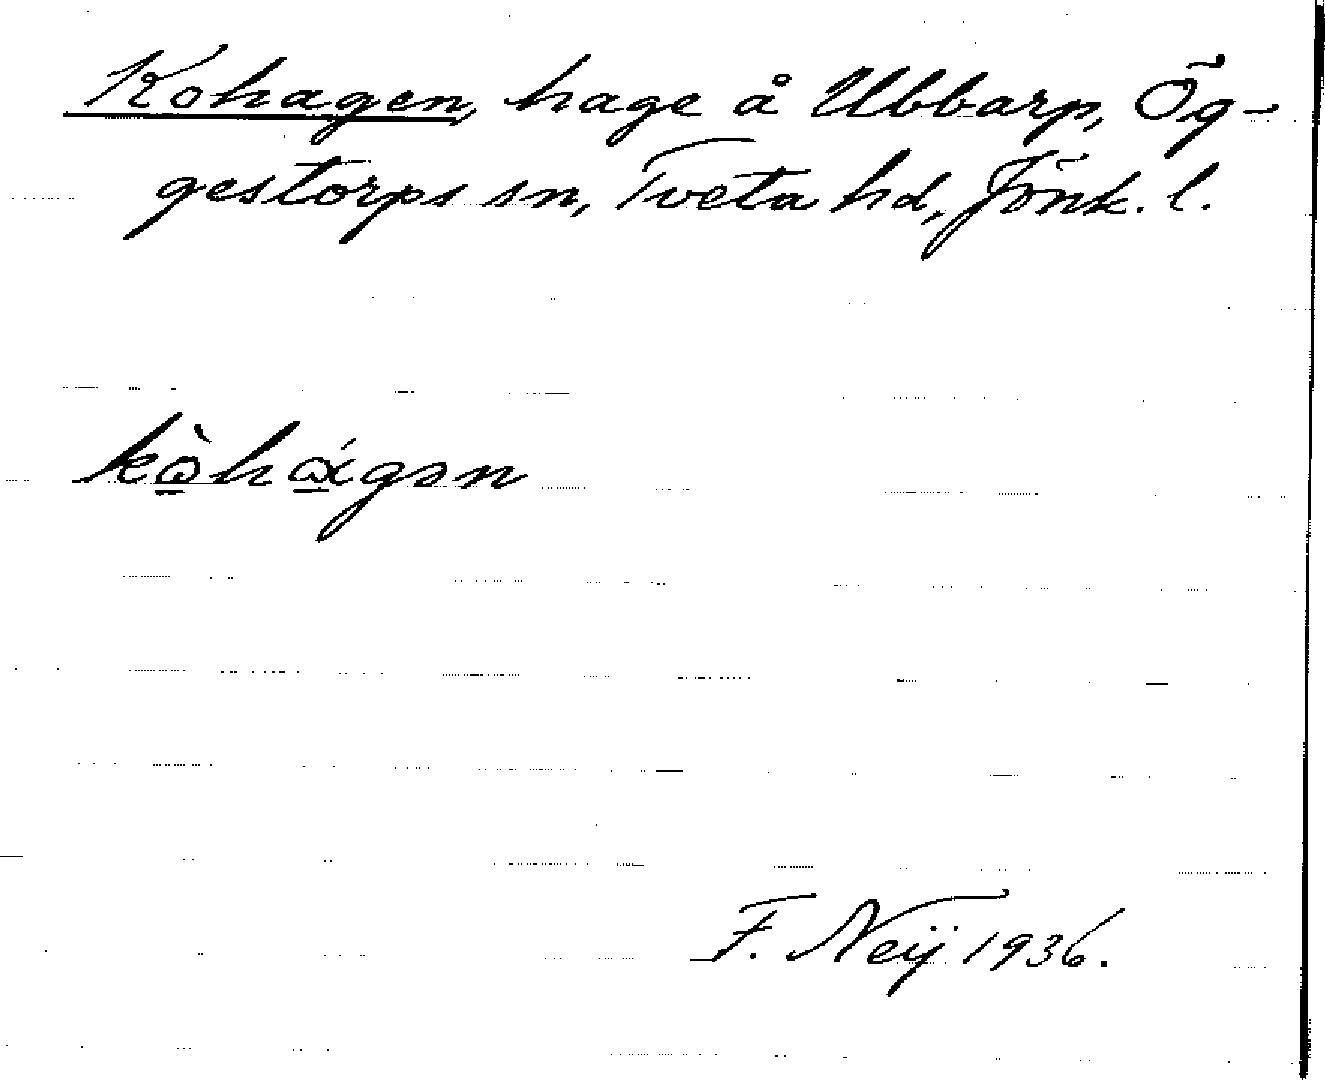 Kohagen, hage å Ubbarp, Ög-
gestorps sn, Tveta hd, Jönk. l.
kò̲hά̲gən
F. Neij 1936.